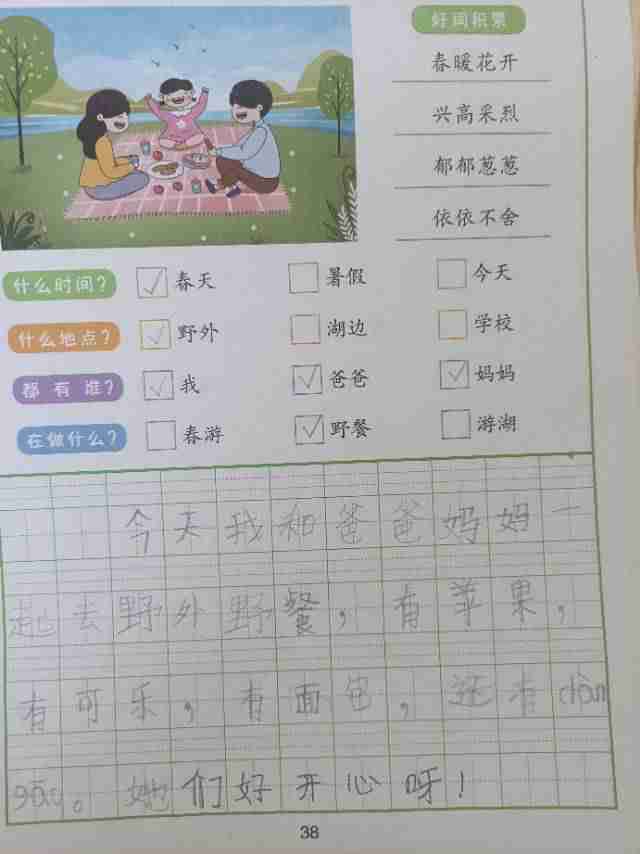 好词积累
春暖花开
兴高采烈
郁郁葱葱
依依不舍
什么时间? 春天 暑假 今天
什么地点? 野外 湖边 学校
都有谁? 我 爸爸 妈妈
在做什么? 春游 野餐 游湖
今天我和爸爸妈妈一
起去野外野餐，有苹果，
有可乐，有面包，还有dàn
gāo。她们好开心呀！
38